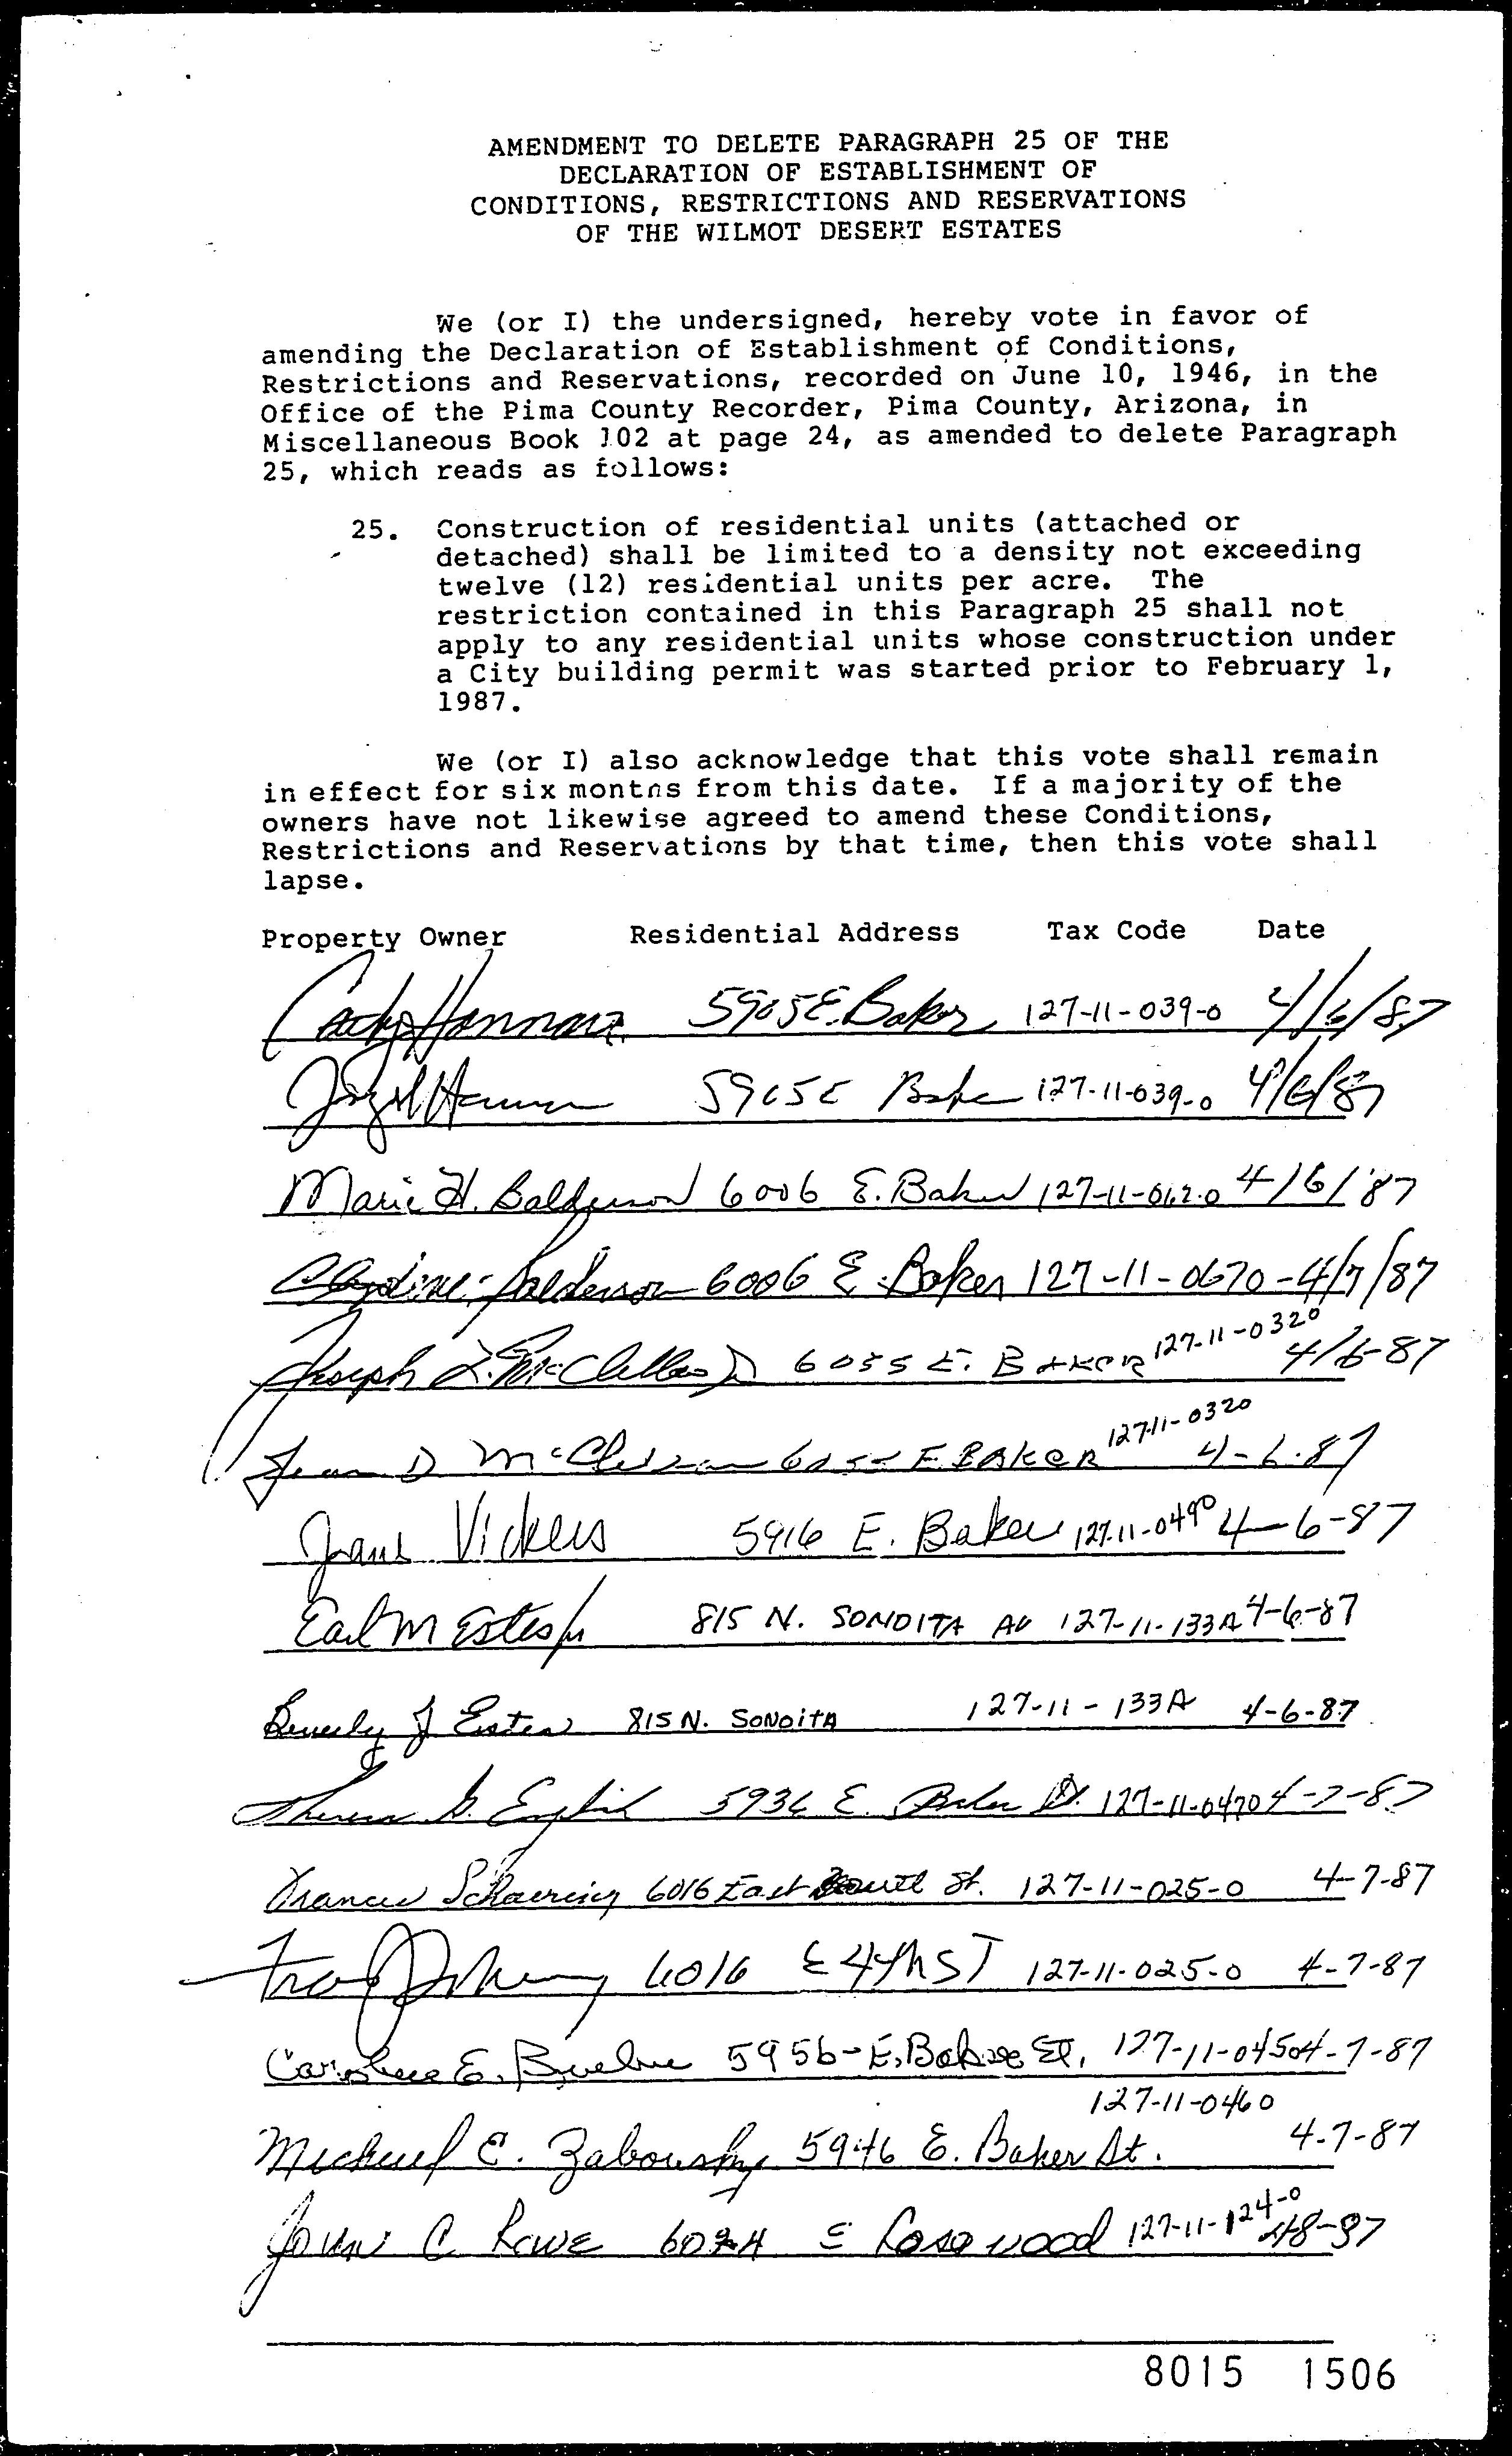 AMENDMENT TO DELETE PARAGRAPH 25 OF THE
DECLARATION OF ESTABLISHMENT OF
CONDITIONS, RESTRICTIONS AND RESERVATIONS
OF THE WILMOT DESERT ESTATES
We (or I) the undersigned, hereby vote in favor of
amending the Declaration of Establishment of Conditions,
Restrictions and Reservations, recorded on June 10, 1946, in the
Office of the Pima County Recorder, Pima County, Arizona, in
Miscellaneous Book 102 at page 24, as amended to delete Paragraph
25, which reads as follows:
25. Construction of residential units (attached or
detached) shall be limited to a density not exceeding
twelve (12) residential units per acre. The
restriction contained in this Paragraph 25 shall not
apply to any residential units whose construction under
a City building permit was started prior to February 1,
1987.
We (or I) also acknowledge that this vote shall remain
in effect for six months from this date. If a majority of the
owners have not likewise agreed to amend these Conditions,
Restrictions and Reservations by that time, then this vote shall
lapse.
Property Owner Residential Address Tax Code Date
5905 E. Baker 127-11-039-0 4/6/87
5905 E Baker 127-11-039-0 4/6/87
Marie H. Balderson 6006 E. Baker 127-11-062-0 4/6/87
Balderson 6006 E. Baker 127-11-0670-4/7/87
Joseph L. McClellan 6055 E. BAKER 127-11-0320 4/6-87
Jean D McClellan 6055 E BAKER 127-11-0320 4-6-87
Vickers 5916 E. Baker 127-11-0490 4-6-87
Earl M Estes Jr 815 N. SONOITA AV 127-11-133A 4-6-87
Beverly J Estes 815 N. SONOITA 127-11-133A 4-6-87
Theresa G. English 5936 E. Baker St. 127-11-0470 4-7-87
Frances 6016 East St. 127-11-025-0 4-7-87
6016 E 4th ST 127-11-025-0 4-7-87
E. 5956-E. Baker St. 127-11-0450 4-7-87
Michael E. Zabousky 5946 E. Baker St. 127-11-0460 4-7-87
John C Rowe E Rosewood 127-11-124-0 4-8-87
8015 1506